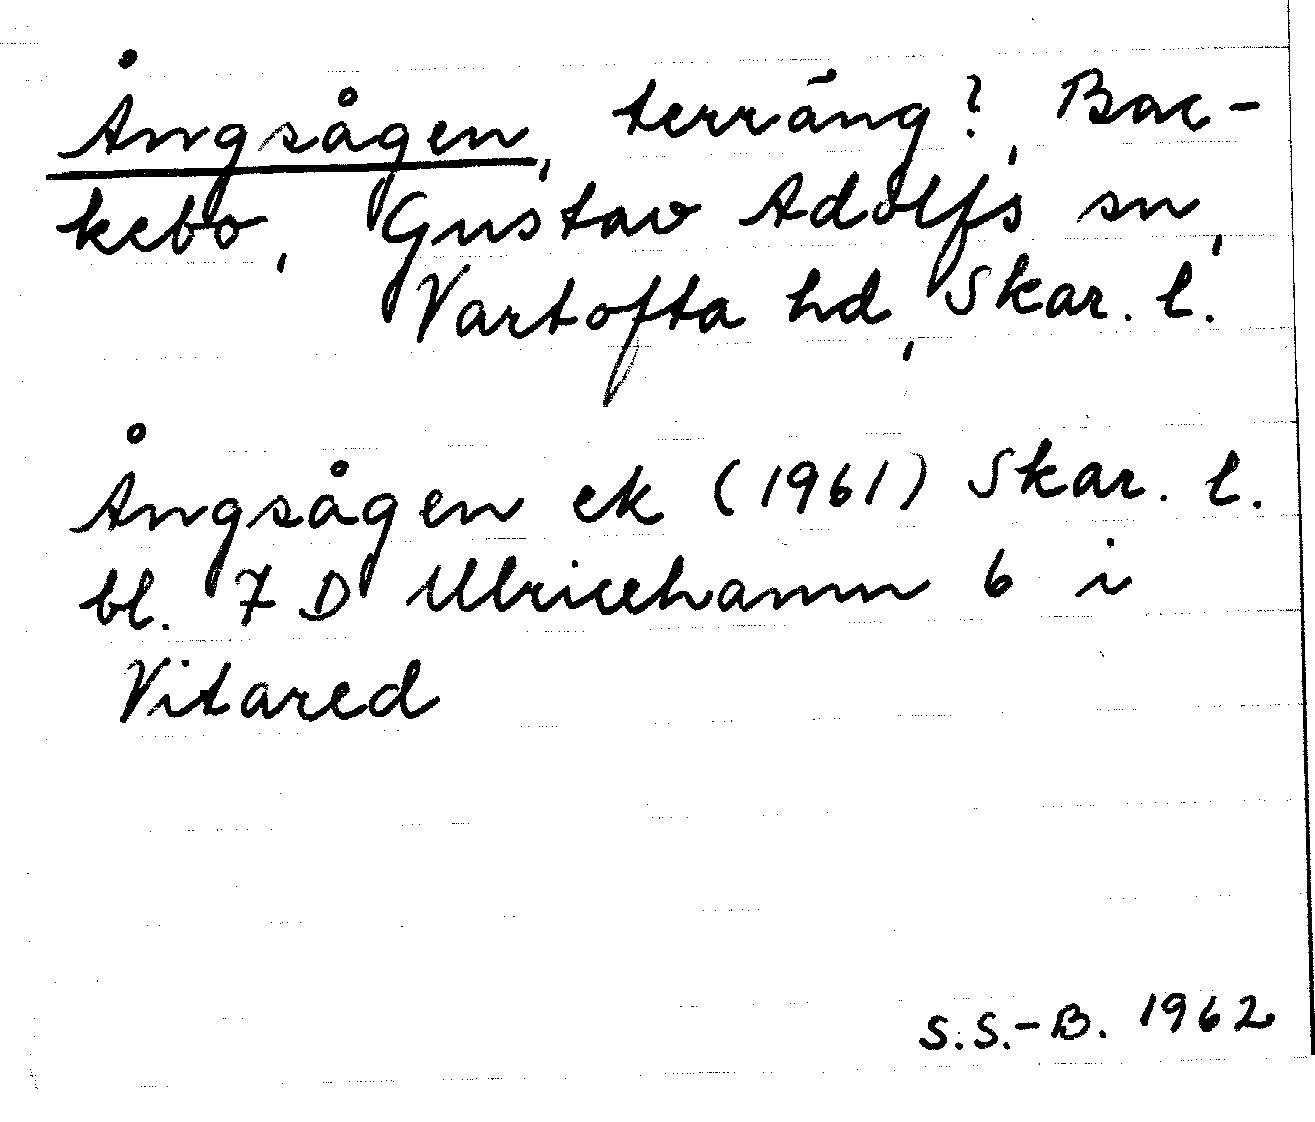 Ångsågen, terräng?, Bac-
kebo, Gustav Adolfs sn,
Vartofta hd, Skar. l.
Ångsågen ek (1961) Skar. l.
bl. 7 D Ulricehamn 6 i
Vitared
S.S.-B. 1962